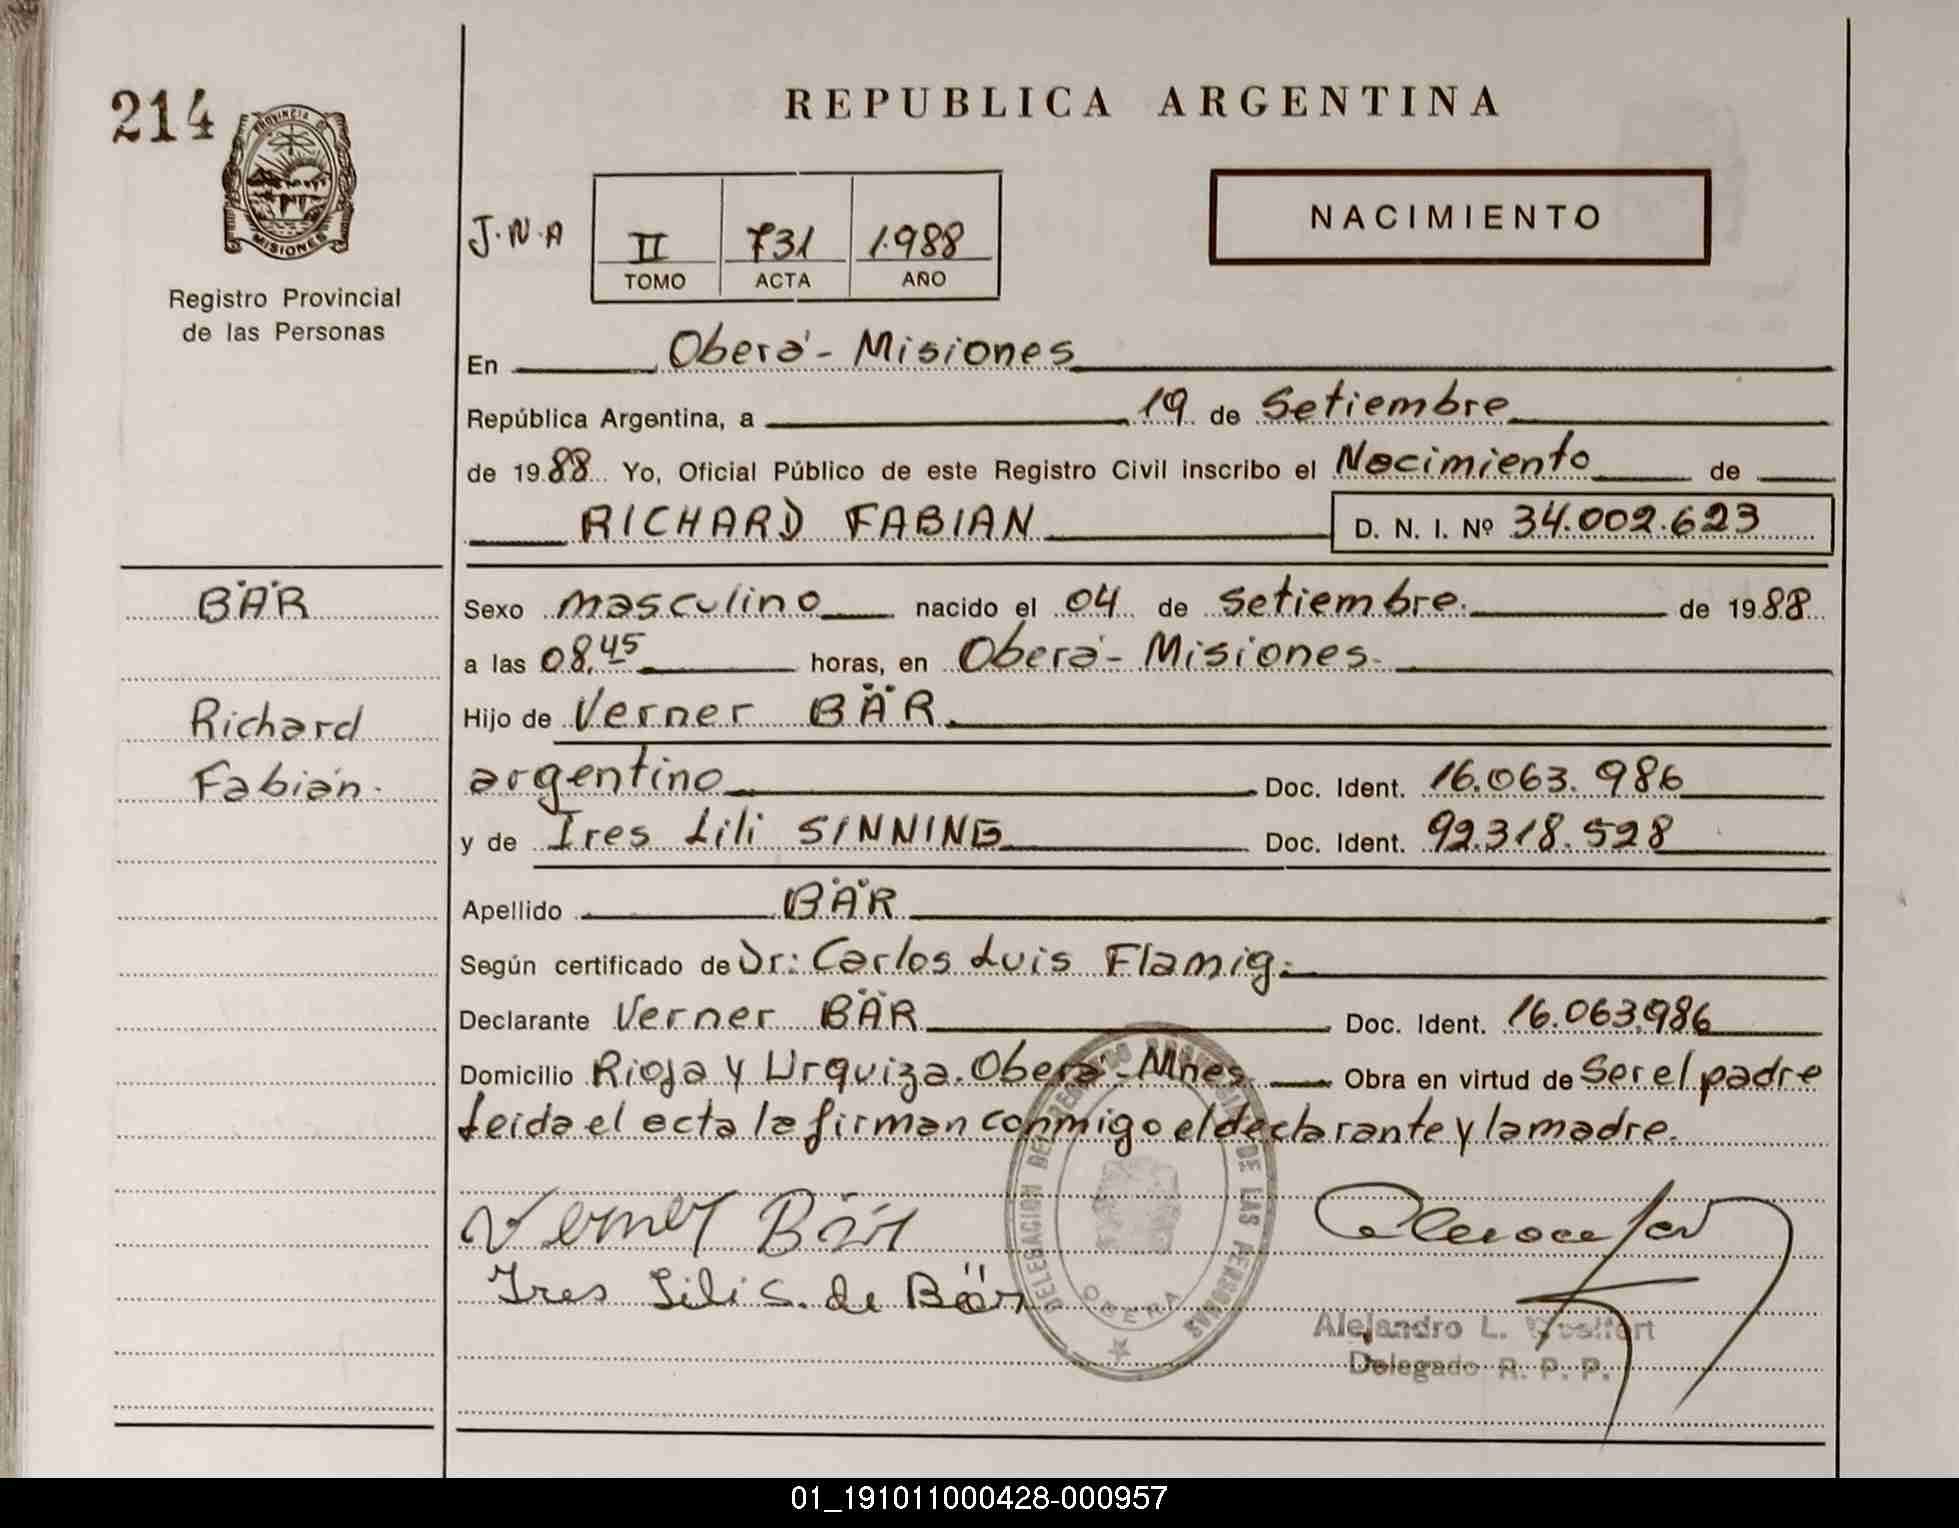 214
PROVINCIA DE
MISIONES
Registro Provincial
de las Personas
REPUBLICA ARGENTINA
J.N.A
II 731 1.988
TOMO ACTA AÑO
NACIMIENTO
En Oberá - Misiones
República Argentina, a 19 de Setiembre
de 1988 Yo, Oficial Público de este Registro Civil inscribo el Nacimiento de
RICHARD FABIAN D. N. I. Nº 34.002.623
BÄR
Richard
Fabián.
Sexo masculino nacido el 04 de Setiembre. de 1988
a las 08,45 horas, en Oberá - Misiones.
Hijo de Verner BÄR
argentino Doc. Ident. 16.063.986
y de Ires Lili SINNING Doc. Ident. 92.318.528
Apellido BÄR
Según certificado de Dr: Carlos Luis Flamig.
Declarante Verner BÄR Doc. Ident. 16.063.986
Domicilio Rioja y Urquiza. Oberá - Mnes. Obra en virtud de Ser el padre
Leida el acta la firman conmigo el declarante y la madre.
Verner Bär
Ires Lili S. de Bär
DELEGACION DEL REGISTRO PROVINCIAL DE LAS PERSONAS
OBERA
Alejandro L.
Delegado R. P. P.
01_191011000428-000957